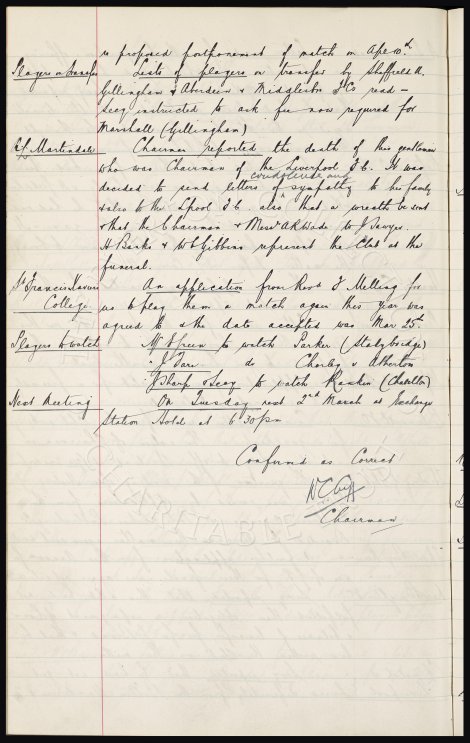 re proposed postponement of match on Apl 10th
Players on Transfer Lists of players on transfer by Sheffield U.
Gillingham & Aberdeen & Middlesbro F Cs read -
Secy instructed to ask fee now required for
Marshall (Gillingham)
Martindale Chairman reported the death of this gentleman
who was Chairman of the Liverpool F C. It was
condolence and
decided to send letters of sympathy to his family
& also to the Lpool F C. also that a wreath be sent
& that the Chairman & Messrs A R Wade Jn Sawyer
H Banks & W C Gibbins represent the Club at the
funeral.
St Francis Xaviers An application from Revd F Melling for
College us to play them a match again this year was
agreed to & the date accepted was Mar 25th
Players to watch Mr Green to watch Parker (Stalybridge)
" J Fare do Chorley v Atherton
J Sharp & Secy to watch (Charlton)
Next Meeting On Tuesday next 2nd March at Exchange
Station Hotel at 6 30pm
Confirmed as Correct
W C Cuff
Chairman
CHARITABLE